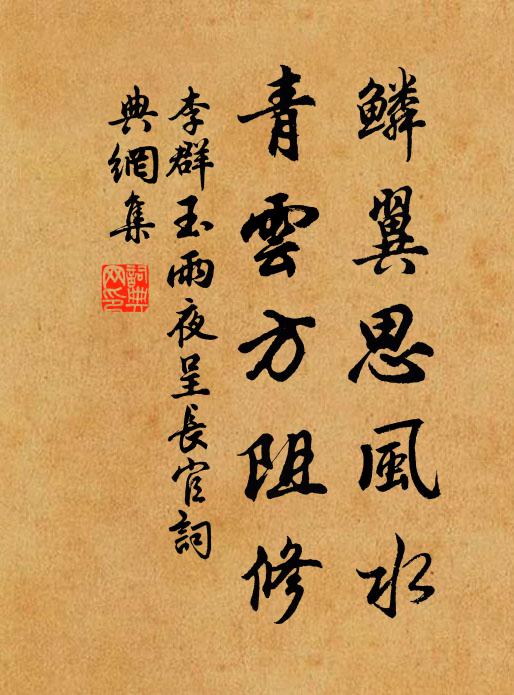 鱗翼思風水
青雲方阻修
李群玉雨夜呈長官詞
典網集
詞典網印